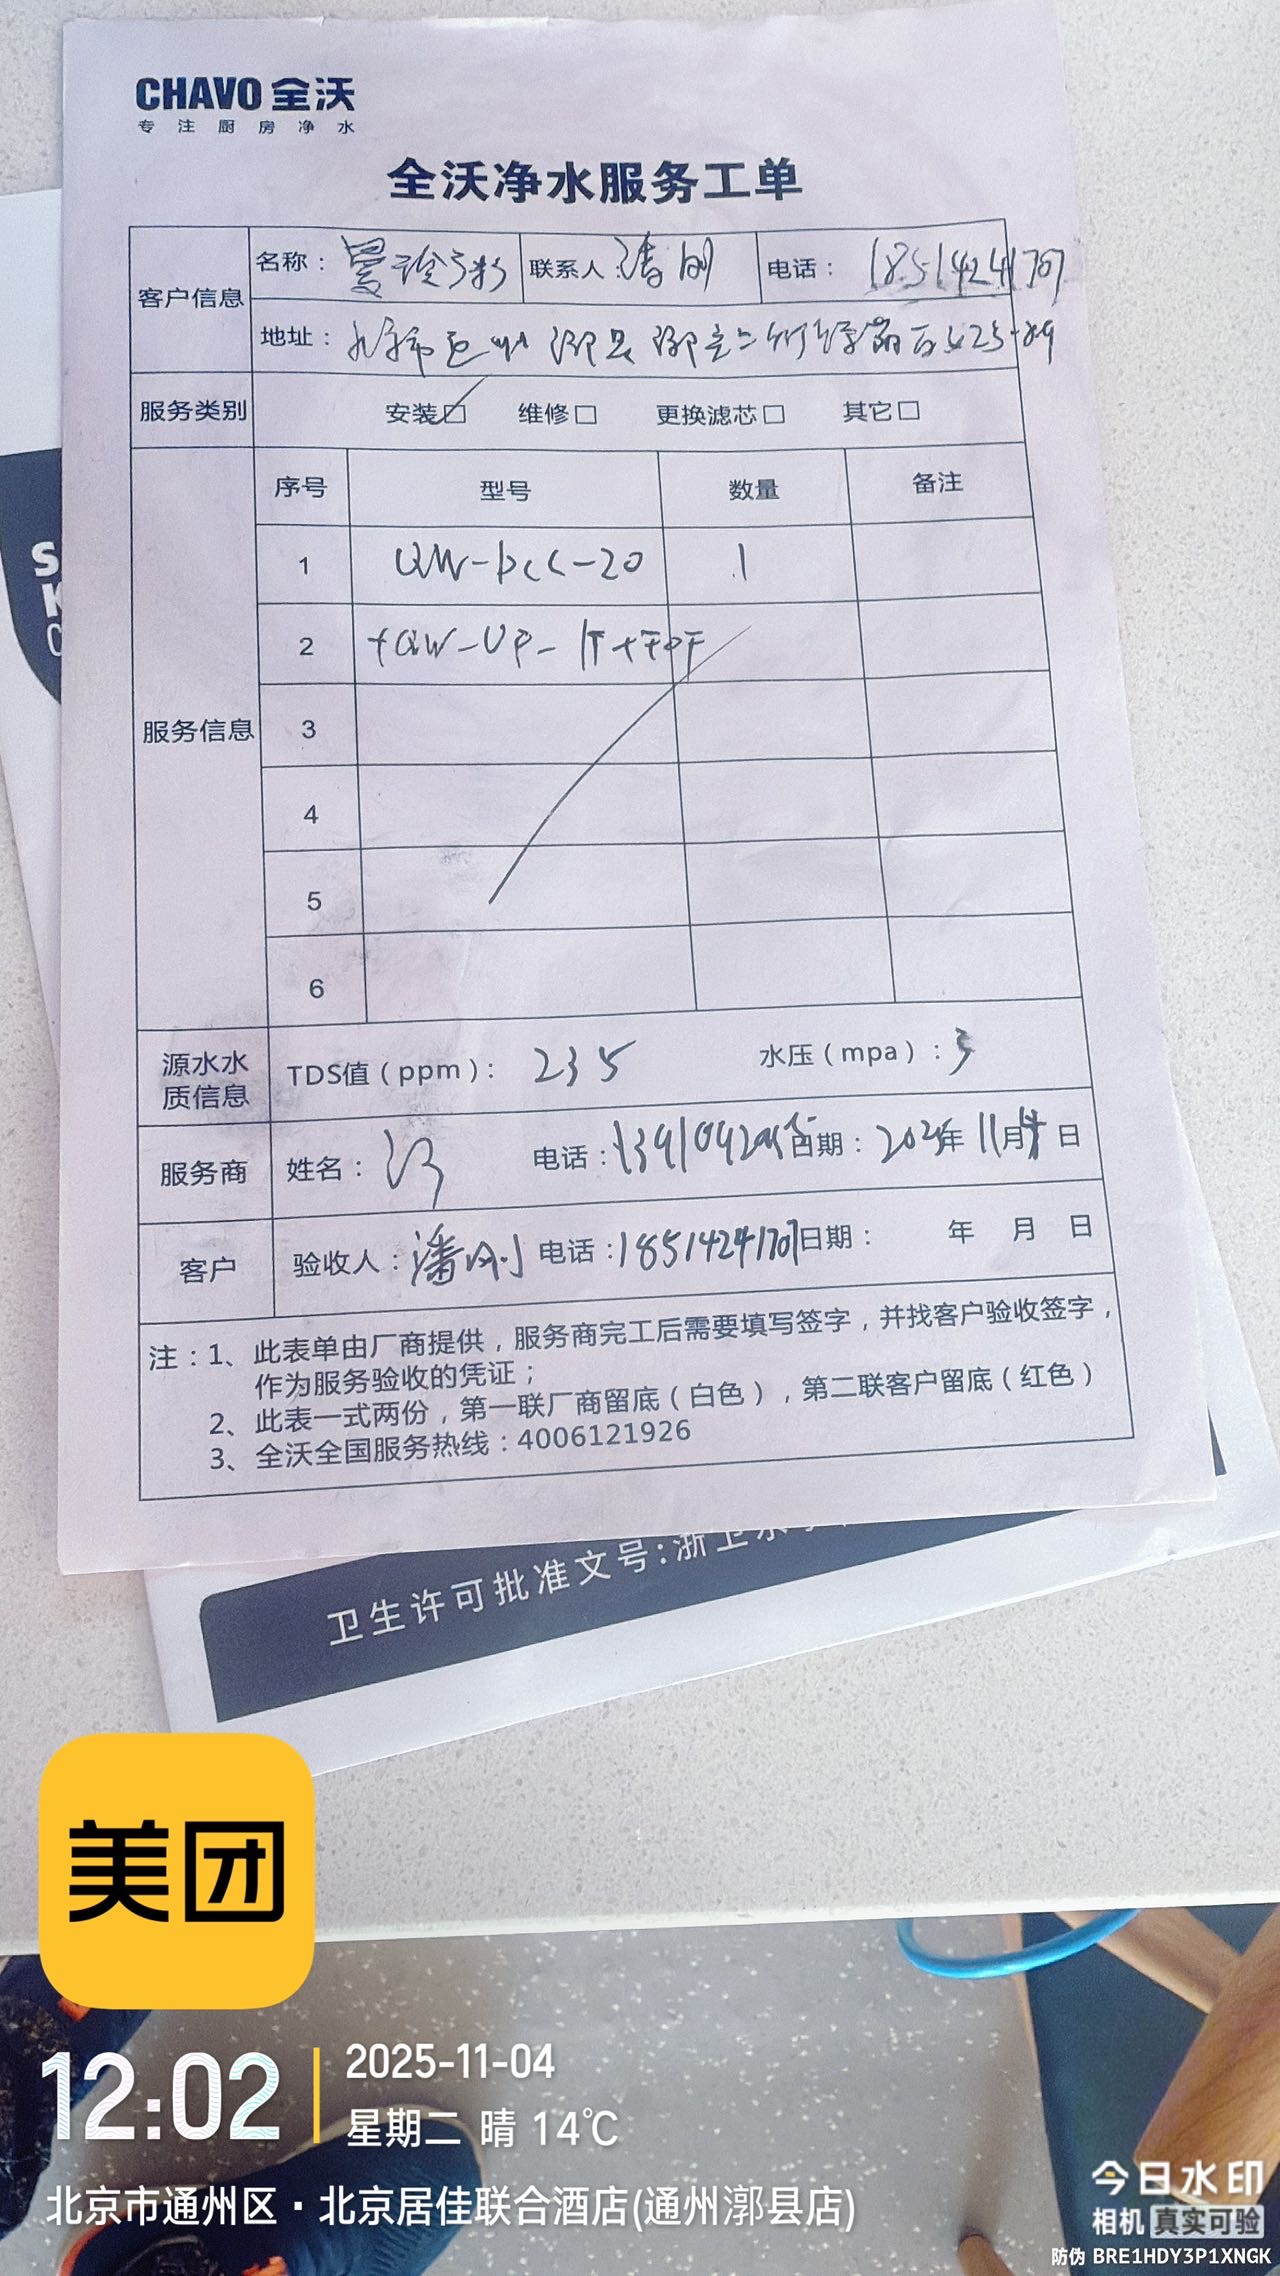 CHAVO 全沃
专注厨房净水
全沃净水服务工单
客户信息 名称： 联系人： 电话：18514241707
地址：
服务类别 安装☑ 维修□ 更换滤芯□ 其它□
服务信息 序号 型号 数量 备注
1 QW-DCC-20 1
2 +QW-UF-
3
4
5
6
源水水质信息 TDS值（ppm）：235 水压（mpa）：3
服务商 姓名： 电话： 日期：2025年11月4日
客户 验收人：潘刚 电话：18514241707 日期： 年 月 日
注：1、此表单由厂商提供，服务商完工后需要填写签字，并找客户验收签字，
作为服务验收的凭证；
2、此表一式两份，第一联厂商留底（白色），第二联客户留底（红色）
3、全沃全国服务热线：4006121926
卫生许可批准文号:浙卫水
美团
12:02
2025-11-04
星期二 晴 14℃
北京市通州区·北京居佳联合酒店(通州漷县店)
今日水印
相机 真实可验
防伪 BRE1HDY3P1XNGK